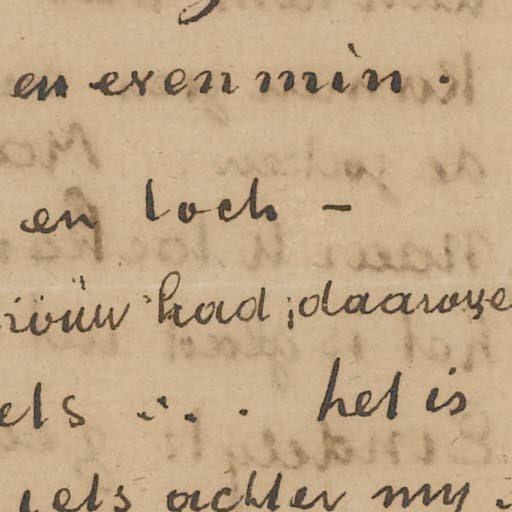 en evenmin.
en toch -
had ; daarove
els ... het is
iets achter my